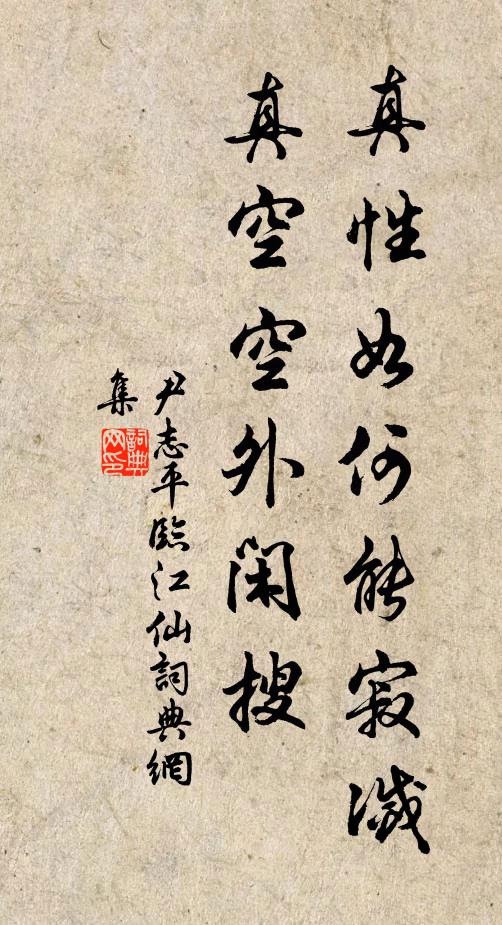 真性如何能寂滅
真空空外閑搜
尹志平臨江仙詞典網
集
詞典网印